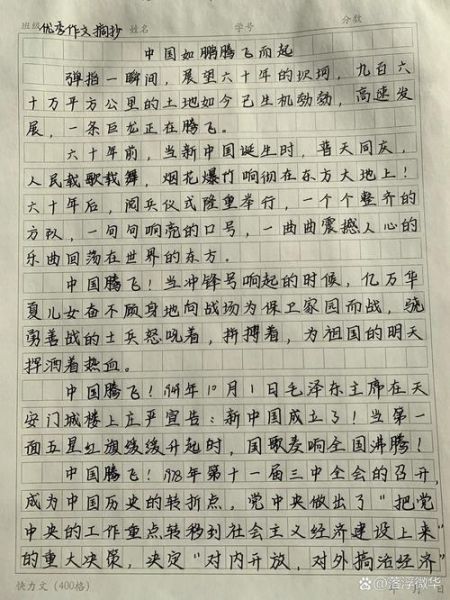 班级 优秀作文摘抄 姓名 学号 分数
中国如鹏腾飞而起
弹指一瞬间，展望六十年的坎坷，九百六
十万平方公里的土地如今已生机勃勃，高速发
展，一条巨龙正在腾飞。
六十年前，当新中国诞生时，普天同庆，
人民载歌载舞，烟花爆竹响彻在东方大地上！
六十年后，阅兵仪式隆重举行，一个个整齐的
方队，一句句响亮的口号，一曲曲震撼人心的
乐曲回荡在世界的东方。
中国腾飞！当冲锋号响起的时候，亿万华
夏儿女奋不顾身地向战场为保卫家园而战，骁
勇善战的士兵怒吼着，拼搏着，为祖国的明天
挥洒着热血。
中国腾飞！1949年10月1日毛泽东主席在天
安门城楼上庄严宣告：新中国成立了！当第一
面五星红旗缓缓升起时，国歌奏响全国沸腾！
中国腾飞！1978年第十一届三中全会的召开，
成为中国历史的转折点，党中央做出了“把党
中央的工作重点转移到社会主义经济建设上来”
的重大决策，决定“对内开放，对外搞活经济”
快力文（400格） 月 日
@落浮微华